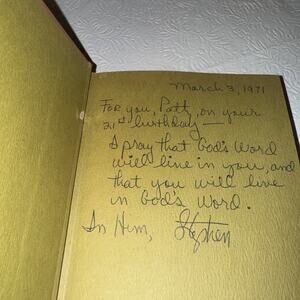 March 3, 1971
For you, Patt, on your
21st birthday —
I pray that God's Word
will live in you, and
that you will live
in God's Word.
In Him, Stephen